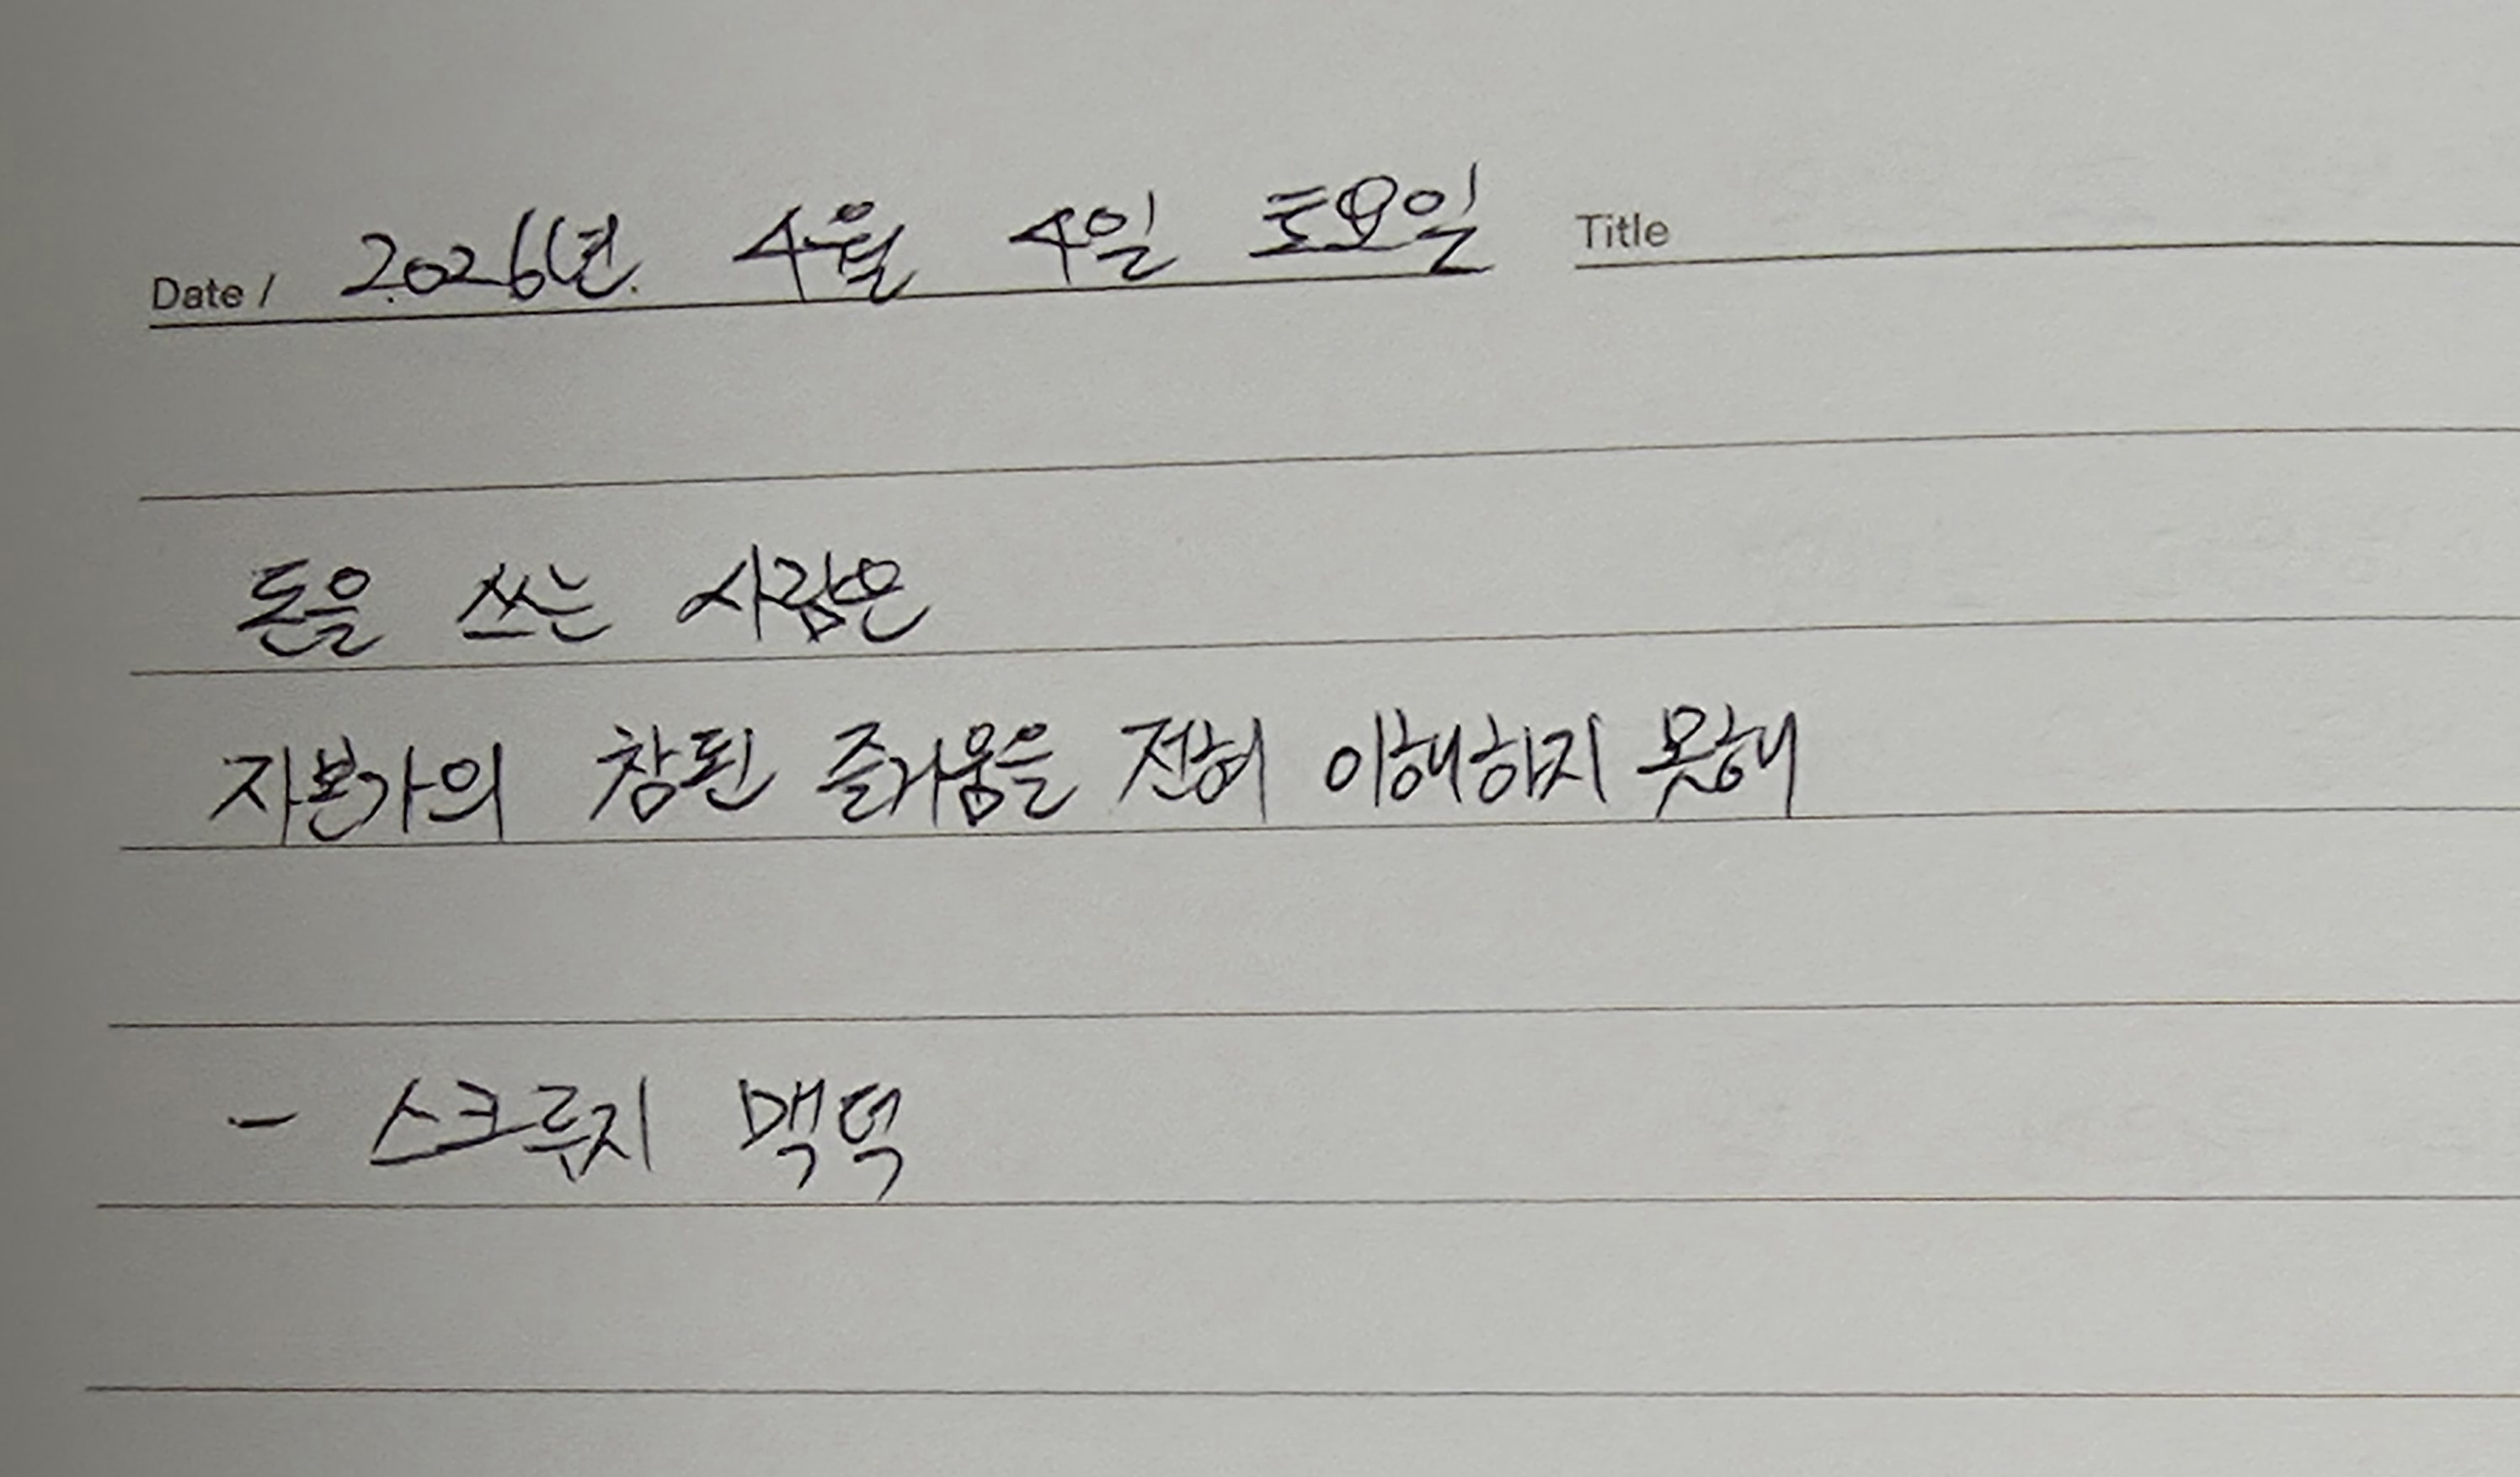 Date / 2026년. 4월 4일 토요일 Title
돈을 쓰는 사람은
자본가의 참된 즐거움을 전혀 이해하지 못해
- 스크루지 맥덕